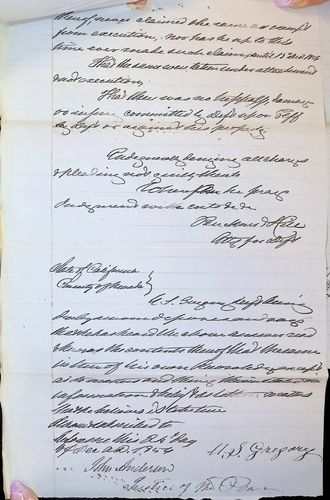 thereof never claimed the same as exempt
from execution, nor has he up to this
time ever made such claim, until 18 Dec 1856
That the same were taken under attachment
and execution.
That there was no trespass, damage
or injury committed by Deft upon Plff
by Deft or against his property
And generally denying all charges
& pleading not guilty thereto
Wherefore he prays
Judgment with costs &c
Atty for Deft
State of California
County of Nevada
U. S. Gregory Deft being
duly sworn deposes and says
that he has heard the above answer and
knows the contents thereof that the same
is true of his own knowledge except
as to matters and things therein stated on
information & belief as to those matters
that he believes it to be true
Sworn & subscribed to
before me this 24 Day
of Dec A.D. 1856
U S Gregory
John Anderson
Justice of the Peace